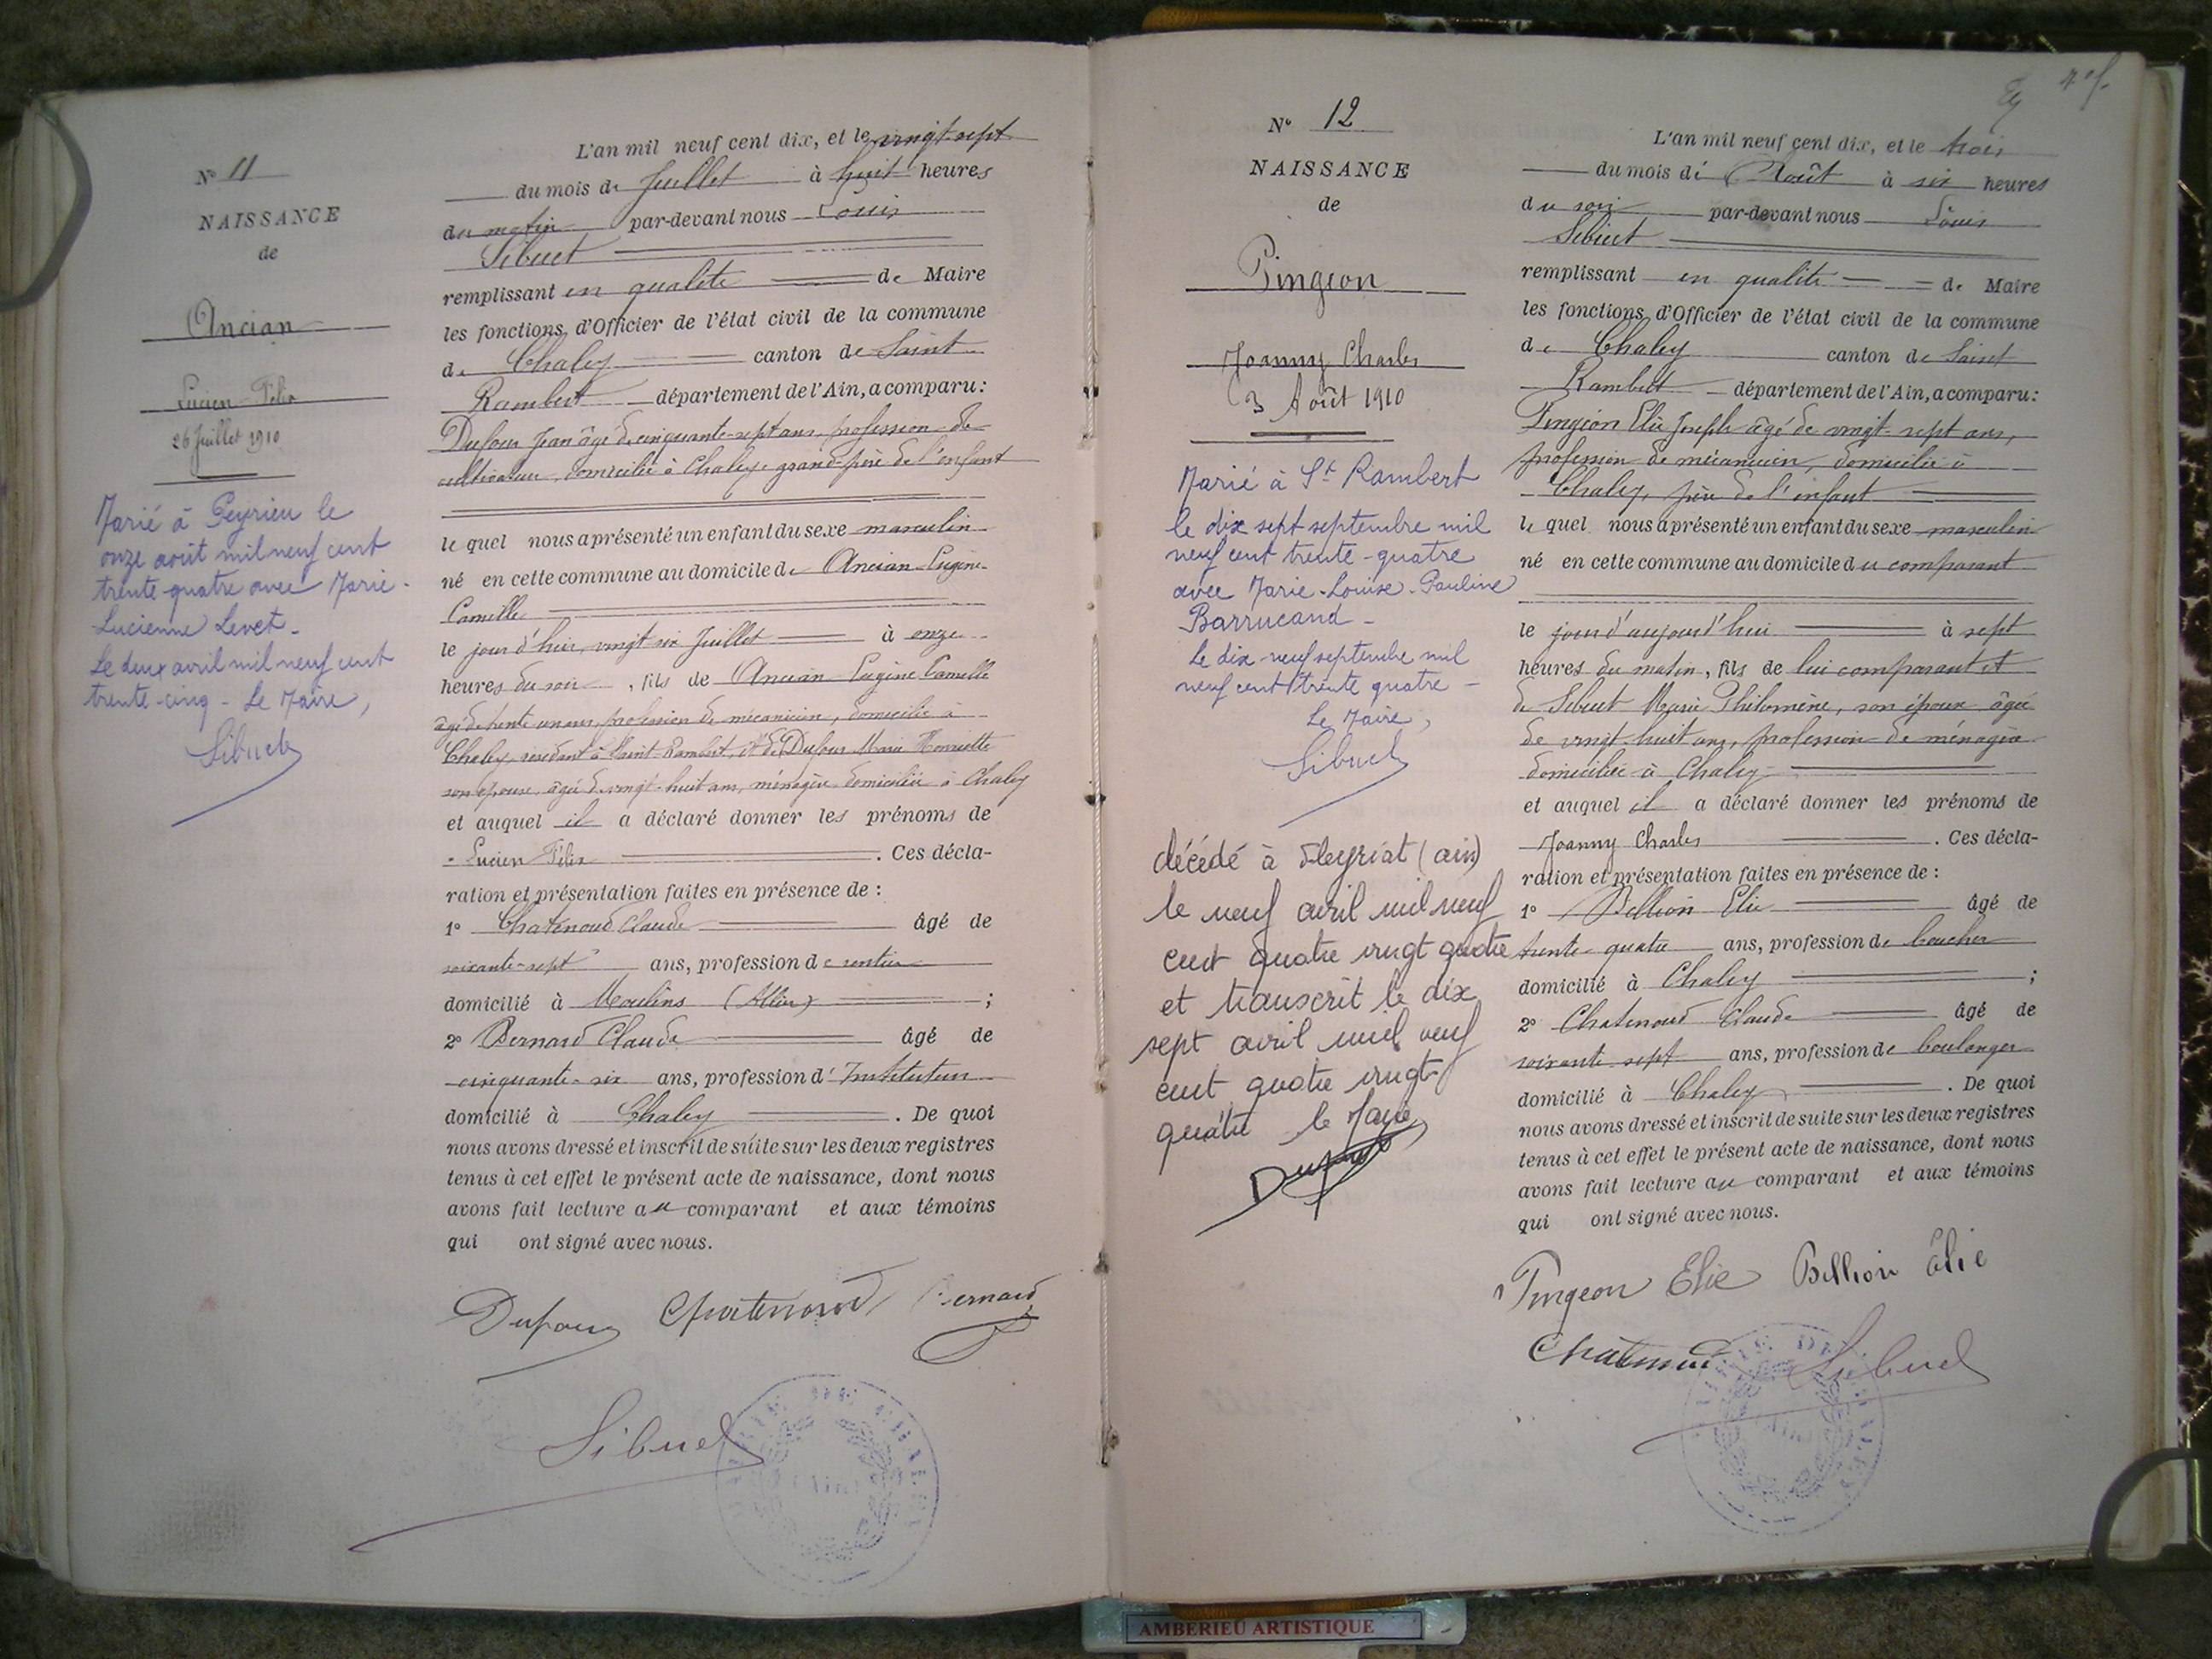 N° 11
NAISSANCE
de
Ancian
Lucien Félix
26 Juillet 1910
Marié à Peyrieu le
onze août mil neuf cent
trente-quatre avec Marie-
Lucienne Levet -
Le deux avril mil neuf cent
trente-cinq - Le Maire,
Sibuet
L'an mil neuf cent dix, et le vingt-sept
du mois de Juillet à huit heures
du matin par-devant nous Louis
Sibuet
remplissant en qualité de Maire
les fonctions d'Officier de l'état civil de la commune
de Chaley canton de Saint
Rambert département de l'Ain, a comparu :
Dufour Jean âgé de cinquante-sept ans, profession de
cultivateur, domicilié à Chaley, grand-père de l'enfant
le quel nous a présenté un enfant du sexe masculin
né en cette commune au domicile de Ancian Eugène
Camille
le jour d'hier, vingt six Juillet à onze
heures du soir, fils de Ancian Eugène Camille
âgé de trente un ans, profession de mécanicien, domicilié à
Chaley, résidant à Saint-Rambert, et de Dufour Marie Henriette
son épouse, âgée de vingt-huit ans, ménagère domiciliée à Chaley
et auquel il a déclaré donner les prénoms de
Lucien Félix. Ces décla-
ration et présentation faites en présence de :
1° Chatenoud Claude âgé de
soixante-sept ans, profession de rentier
domicilié à Moulins (Allier) ;
2° Bernard Claude âgé de
cinquante-six ans, profession d'Instituteur
domicilié à Chaley. De quoi
nous avons dressé et inscrit de suite sur les deux registres
tenus à cet effet le présent acte de naissance, dont nous
avons fait lecture au comparant et aux témoins
qui ont signé avec nous.
Dufour Chatenoud Bernard
Sibuet
N° 12
NAISSANCE
de
Pingeon
Joanny Charles
3 Août 1910
Marié à St Rambert
le dix sept septembre mil
neuf cent trente-quatre
avec Marie-Louise-Pauline
Barrucand -
Le dix-neuf septembre mil
neuf cent trente quatre -
Le Maire,
Sibuet
décédé à Fleyriat (ain)
le neuf avril mil neuf
cent quatre vingt quatre
et transcrit le dix
sept avril mil neuf
cent quatre vingt
quatre le Maire
L'an mil neuf cent dix, et le trois
du mois d'Août à six heures
du soir par-devant nous Louis
Sibuet
remplissant en qualité de Maire
les fonctions d'Officier de l'état civil de la commune
de Chaley canton de Saint
Rambert département de l'Ain, a comparu :
Pingeon Elie Joseph âgé de vingt-sept ans,
profession de mécanicien, domicilié à
Chaley, père de l'enfant
le quel nous a présenté un enfant du sexe masculin
né en cette commune au domicile du comparant
le jour d'aujourd'hui à sept
heures du matin, fils de lui comparant et
de Sibuet Marie Philomène, son épouse âgée
de vingt-huit ans, profession de ménagère
domiciliée à Chaley
et auquel il a déclaré donner les prénoms de
Joanny Charles. Ces décla-
ration et présentation faites en présence de :
1° Bellion Elie âgé de
trente-quatre ans, profession de boucher
domicilié à Chaley ;
2° Chatenoud Claude âgé de
soixante-sept ans, profession de boulanger
domicilié à Chaley. De quoi
nous avons dressé et inscrit de suite sur les deux registres
tenus à cet effet le présent acte de naissance, dont nous
avons fait lecture au comparant et aux témoins
qui ont signé avec nous.
Pingeon Elie Bellion Élie
Chatenoud Sibuet
AMBERIEU ARTISTIQUE